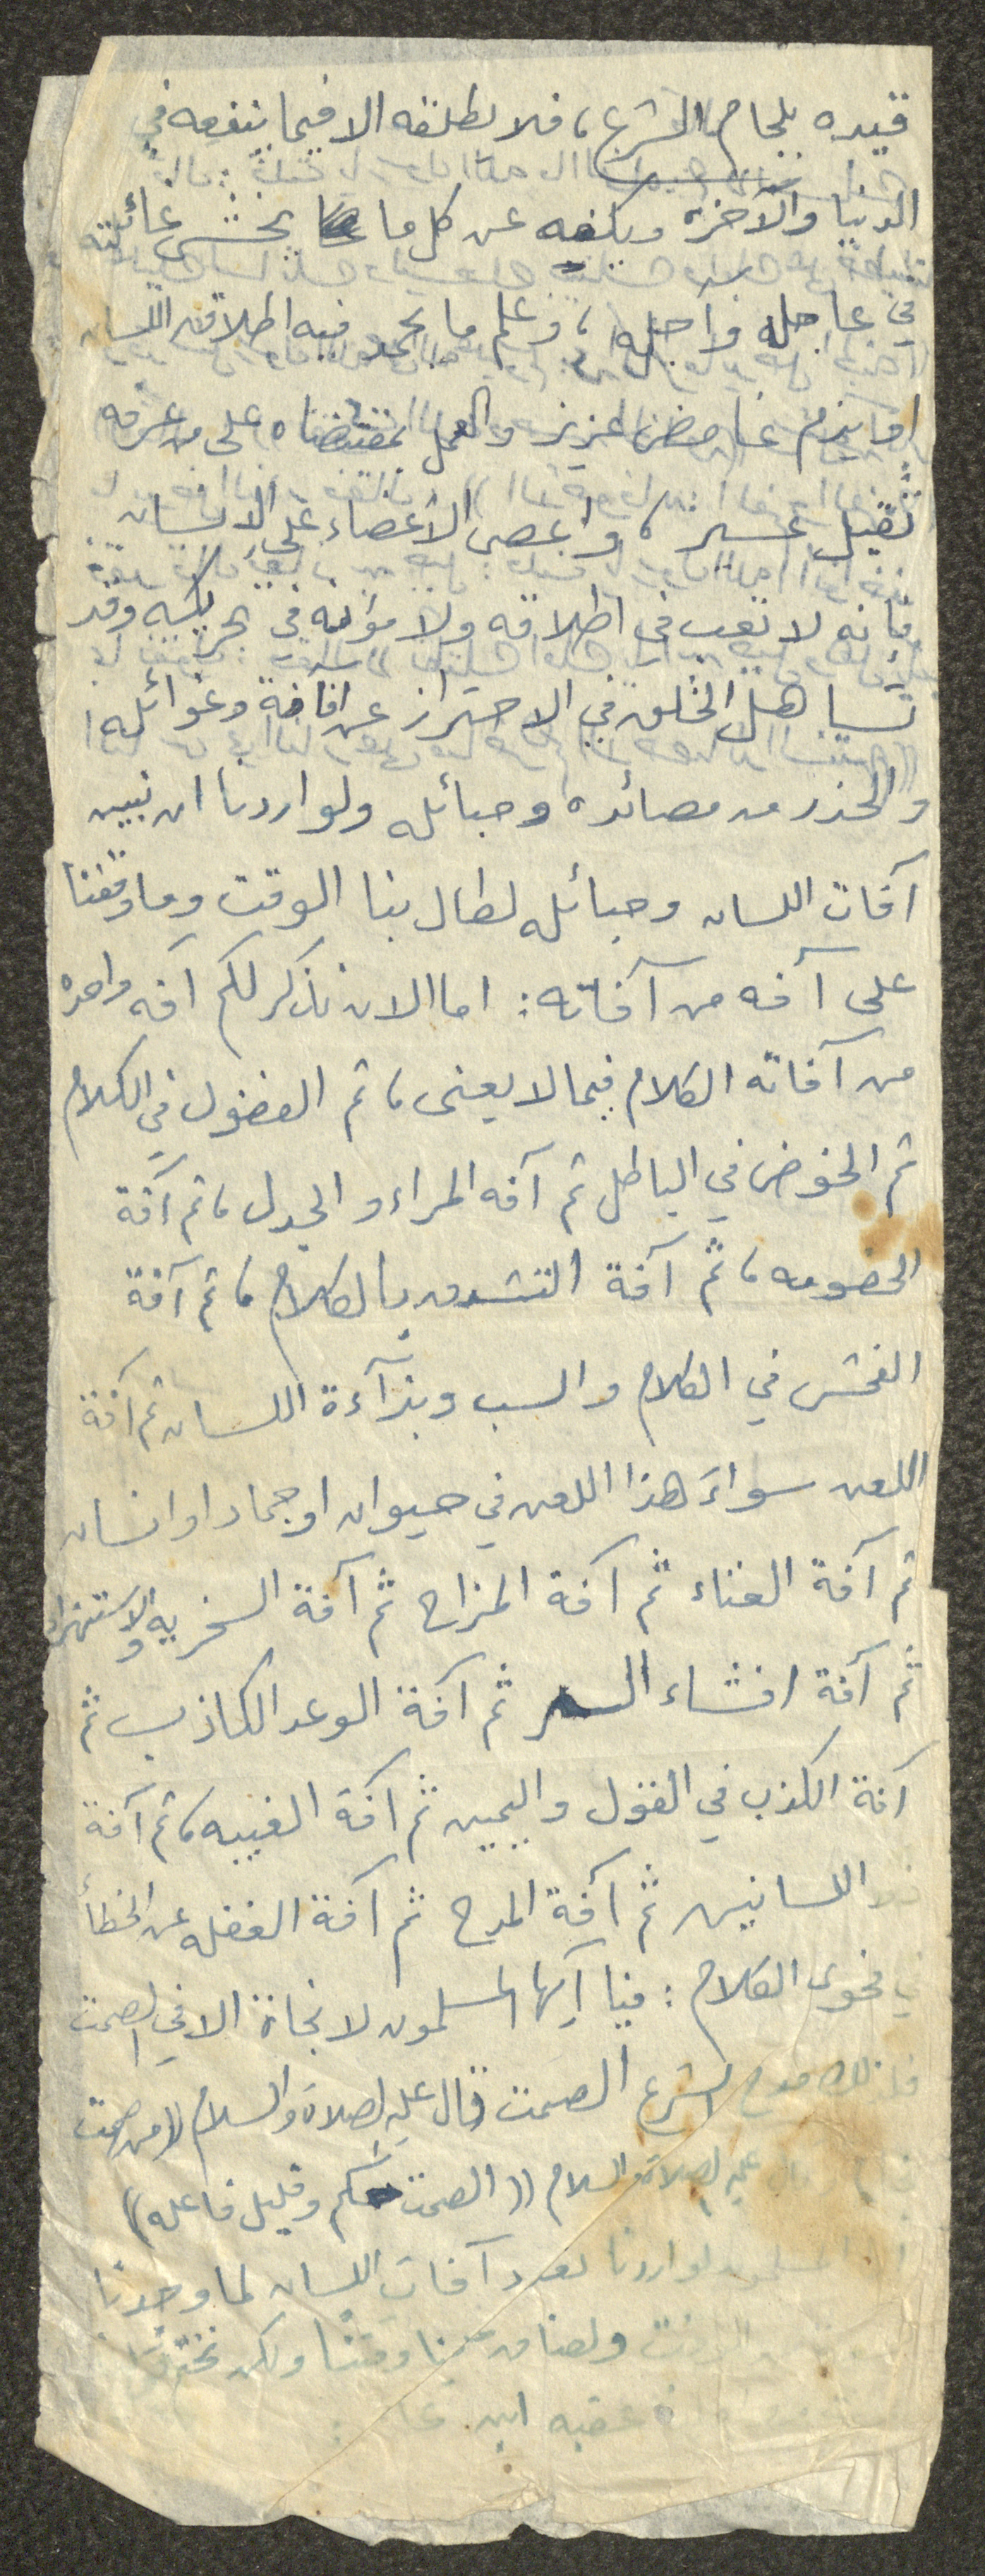 قيده بلجام الشرع، فلا يطلقه الا فيما ينفعه في
الدنيا والآخره ويكفه عن كل ما يخشى غائلته
في عاجله وآجله، وعلم ما يحمد فيه اطلاق اللسان
او يذم غامض عزيز والعمل بمقتضاه على من عرفه
ثقيل عسير، واعصى الاعضاء على الانسان
فانه لا تعب في اطلاقه ولا مؤنه في تحريكه وقد
تساهل الخلق في الاحتراز عن افاته وغوائله
والحذر من مصائده وحبائله ولو اردنا ان نبين
آفات اللسان وحبائله لطال بنا الوقت وما وقفنا
على آفه من آفاته: اما الان نذكر لكم آفه واحده
من آفاته الكلام فيما لا يعنى، ثم الفضول في الكلام
ثم الخوض في الباطل ثم آفه المراء و الجدل، ثم آفة
الخصومه، ثم آفة التشدق بالكلام، ثم آفة
الفحش في الكلام والسب وبذآءة اللسان ثم آفة
اللعن سواء هذا اللعن في حيوان او جماد او انسان
ثم آفة الغناء ثم آفة المزاح ثم آفة السخريه والاستهزاء
ثم آفة افشاء السر ثم آفة الوعد الكاذب ثم
آفة الكذب في القول واليمين ثم آفة الغيبه، ثم آفة
اللسانين ثم آفة المدح ثم آفة الغفله عن الخطأ
في فحوى الكلام: فيا آيها المسلمون لا نجاة الا في الصمت
فلذلك مدح الشرع الصمت قال عليه الصلاة والسلام ((من صمت
عليه الصلاة والسلام ((الصمت حكم وقليل فاعله))
لو اردنا نعدد آفات اللسان لما وجدنا
ولكن نختم
عقبه ابن